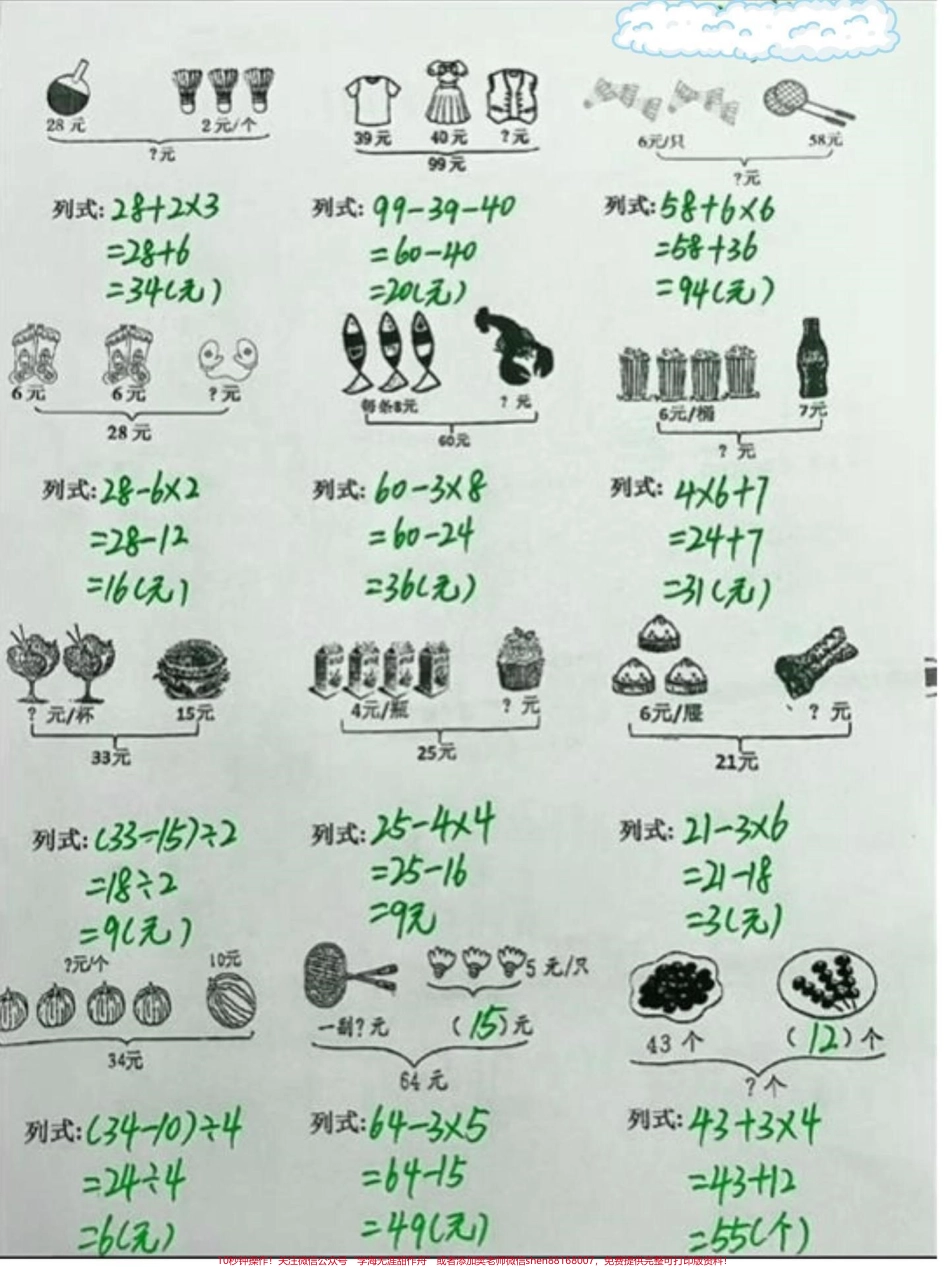 28元 2元/个
?元
39元 40元 ?元
99元
6元/只 58元
?元
列式:28+2×3
=28+6
=34(元)
列式:99-39-40
=60-40
=20(元)
列式:58+6×6
=58+36
=94(元)
6元 6元 ?元
28元
每条8元 ?元
60元
6元/桶 7元
?元
列式:28-6×2
=28-12
=16(元)
列式:60-3×8
=60-24
=36(元)
列式:4×6+7
=24+7
=31(元)
?元/杯 15元
33元
4元/瓶 ?元
25元
6元/屉 ?元
21元
列式:(33-15)÷2
=18÷2
=9(元)
列式:25-4×4
=25-16
=9元
列式:21-3×6
=21-18
=3(元)
?元/个 10元
34元
5元/只
一副?元 (15)元
64元
43个 (12)个
?个
列式:(34-10)÷4
=24÷4
=6(元)
列式:64-3×5
=64-15
=49(元)
列式:43+3×4
=43+12
=55(个)
10秒钟操作!关注微信公众号 学海无涯甜作舟 或者添加奥老师微信shen88168007,免费提供完整可打印版资料!